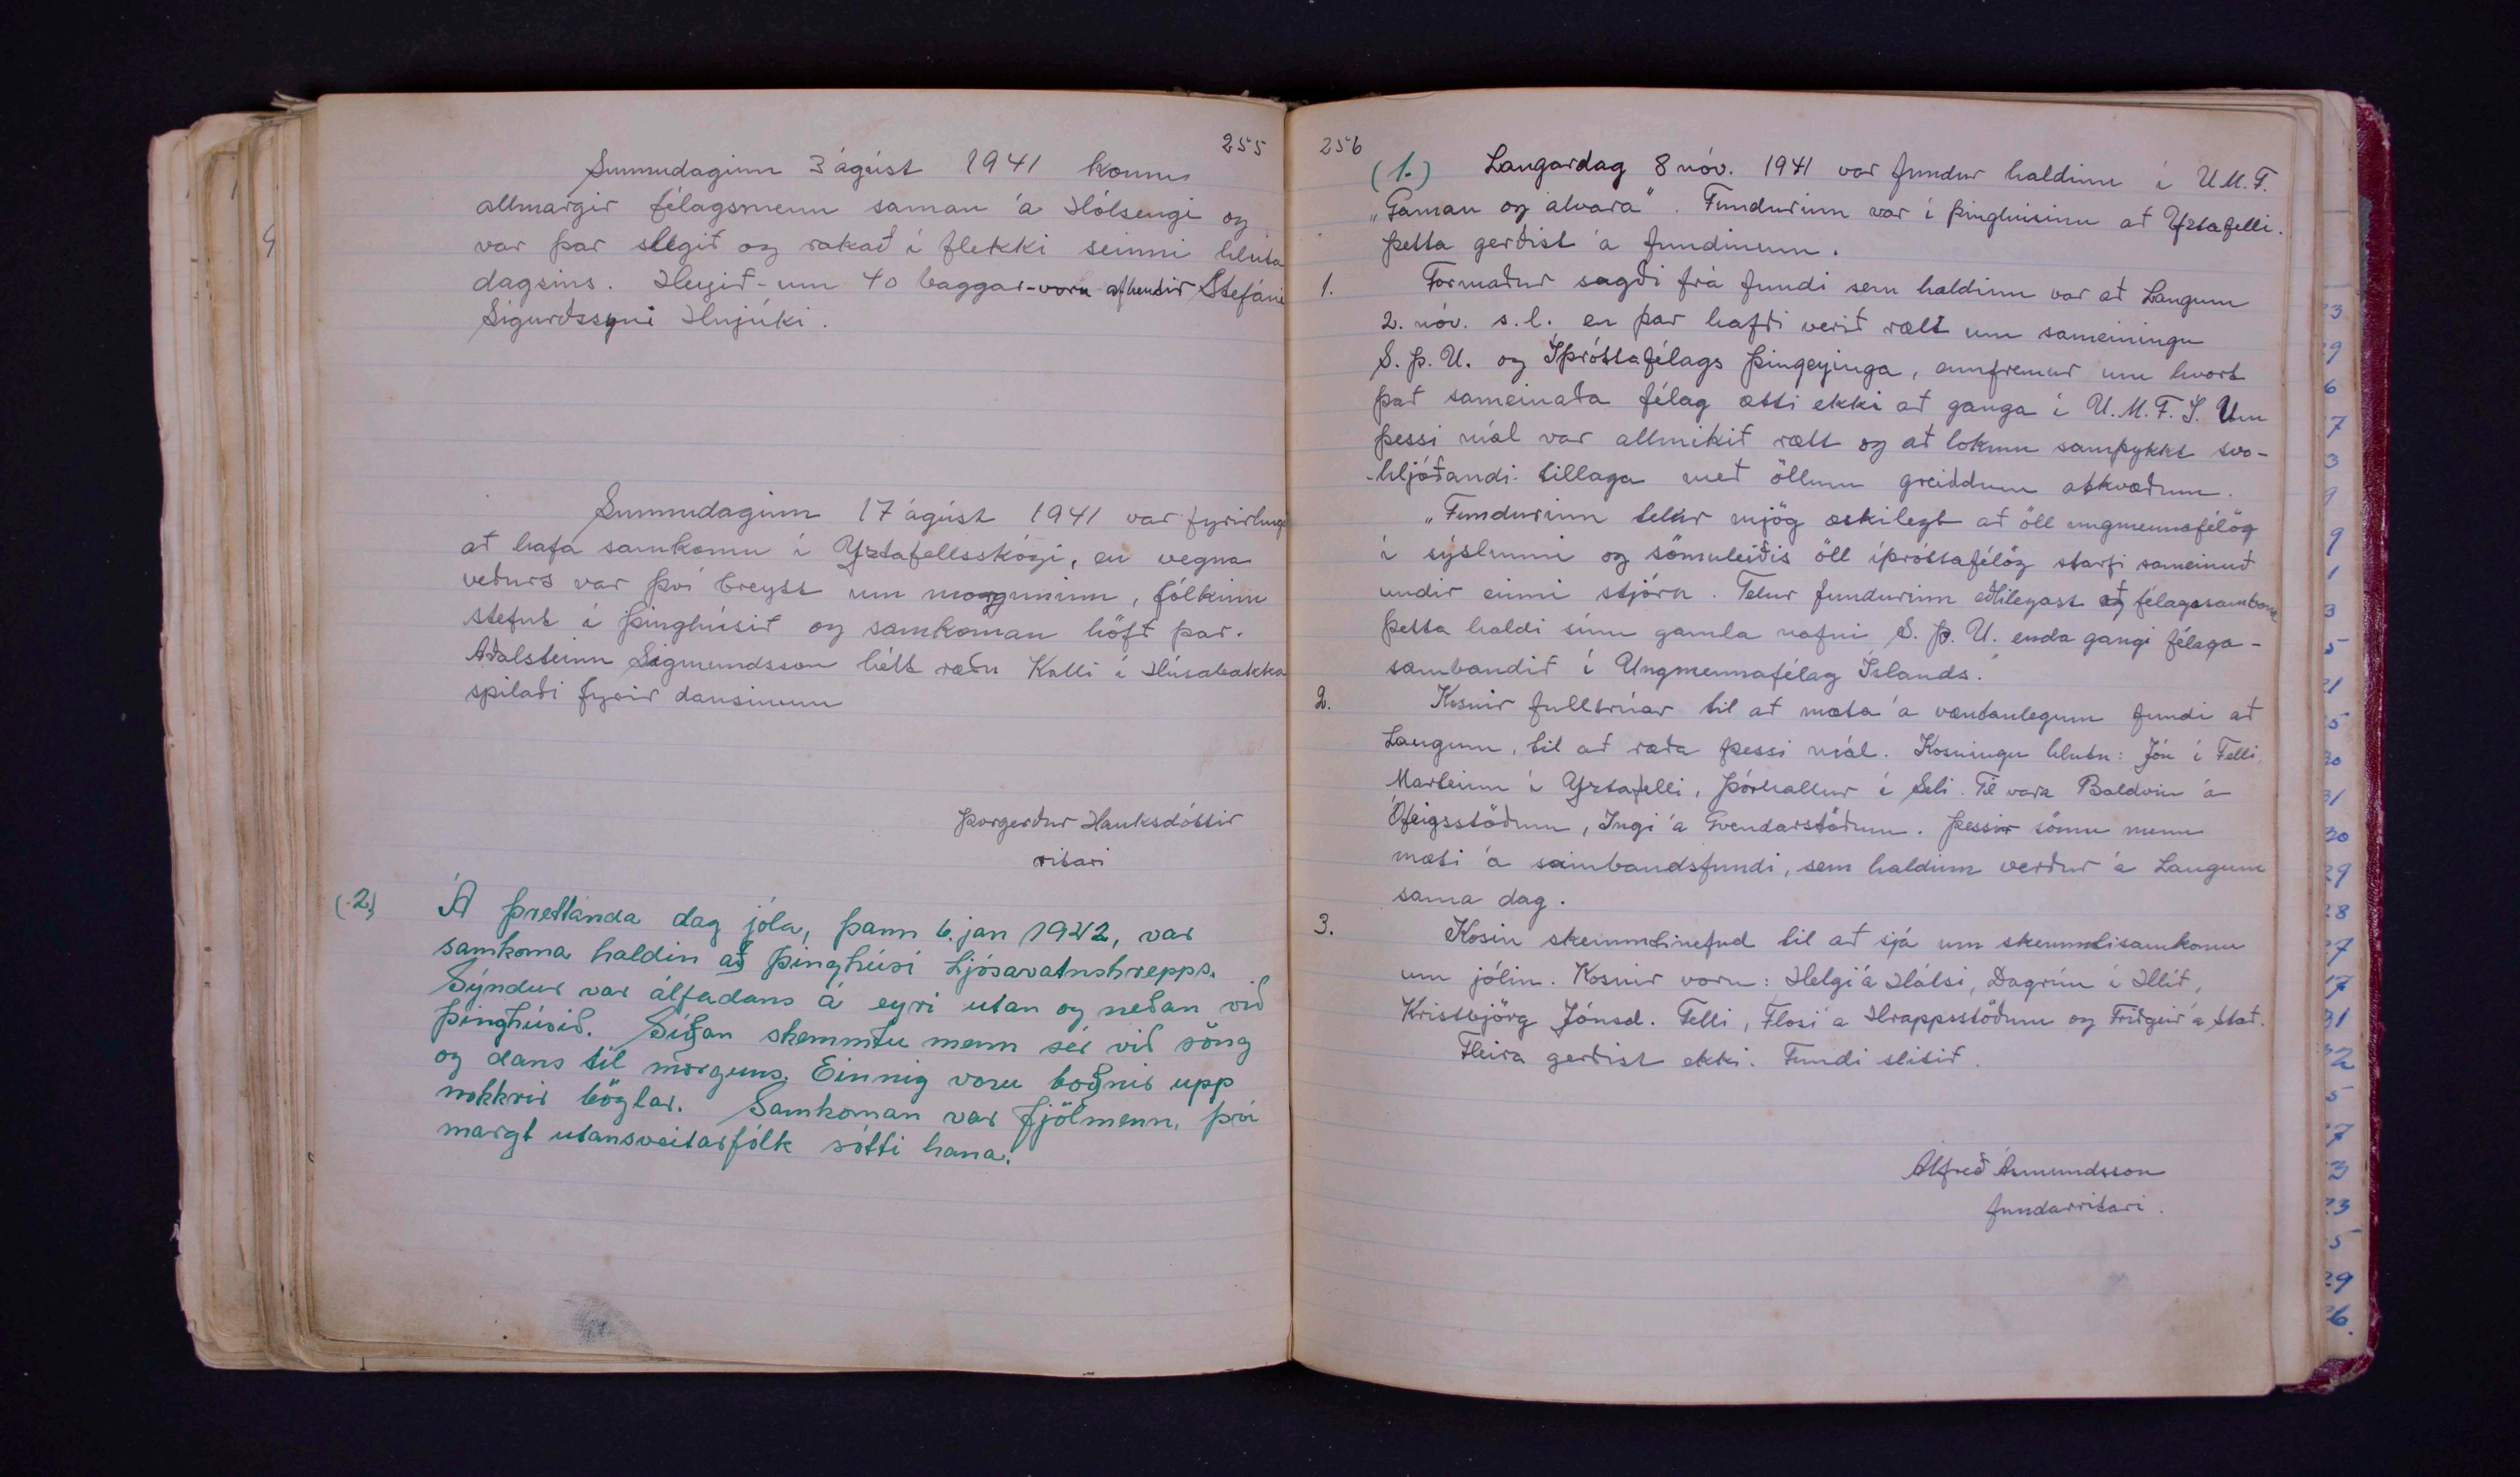 255
Sunnudaginn 3 ágúst 1941 komu
allmargir félagsmenn saman á Hólsengi og
var þar slegið og rakað í flekki seinni hluta
dagsins. Heyið - um 40 baggar - voru afhendir Stefáni
Sigurðssyni Hnjúki.
Sunnudaginn 17 ágúst 1941 var fyrirhug
að hafa samkomu í Yztafellsskógi, en vegna
veðurs var því breytt um morguninn, fólkinu
stefnt í þinghúsið og samkoman höfð þar.
Aðalsteinn Sigmundsson hélt ræðu Kalli í Húsabakka
spilaði fyrir dansinum
Þorgerður Hauksdóttir
ritari
(2) Á þrettánda dag jóla, þann 6. jan 1942, var
samkoma haldin að þinghúsi Ljósavatnshrepps.
Sýndur var álfadans á eyri utan og neðan við
þinghúsið. Síðan skemmtu menn sér við söng
og dans til morguns. Einnig voru boðnir upp
nokkrir böglar. Samkoman var fjölmenn, því
margt utansveitarfólk sótti hana.
256
(1.) Laugardag 8 nóv. 1941 var fundur haldinn í U.M.F.
„Gaman og alvara“. Fundurinn var í þinghúsinu að Yztafelli.
Þetta gerðist á fundinum.
1. Formaður sagði frá fundi sem haldinn var að Laugum
2. nóv. s.l. en þar hafði verið rætt um sameiningu
S.Þ.U. og Íþróttafélags Þingeyinga, ennfremur um hvort
það sameinaða félag ætti ekki að ganga í U.M.F.Í. Um
þessi mál var allmikið rætt og að lokum samþykkt svo-
hljóðandi tillaga með öllum greiddum atkvæðum.
„Fundurinn telur mjög æskilegt að öll ungmennafélög
í sýslunni og sömuleiðis öll íþróttafélög starfi sameinuð
undir einni stjórn. Telur fundurinn eðlilegast að félagssamband
þetta haldi sínu gamla nafni S.Þ.U. enda gangi félaga-
sambandið í Ungmennafélag Íslands.“
2. Kosnir fulltrúar til að mæta á væntanlegum fundi að
Laugum, til að ræða þessi mál. Kosningu hlutu: Jón í Felli
Marteinn í Yztafelli, Þórhallur í Seli. Til vara Baldvin á
Ófeigsstöðum, Ingi á Gvendarstöðum. Þessir sömu menn
mæti á sambandsfundi, sem haldinn verður á Laugum
sama dag.
3. Kosin skemmtinefnd til að sjá um skemmtisamkomu
um jólin. Kosnir voru: Helgi á Hálsi, Dagrún í Hlíð,
Kristbjörg Jónsd. Felli, Flosi á Hrappsstöðum og Friðgeir á Stað.
Fleira gerðist ekki. Fundi slitið.
Alfreð Ásmundsson
fundarritari.